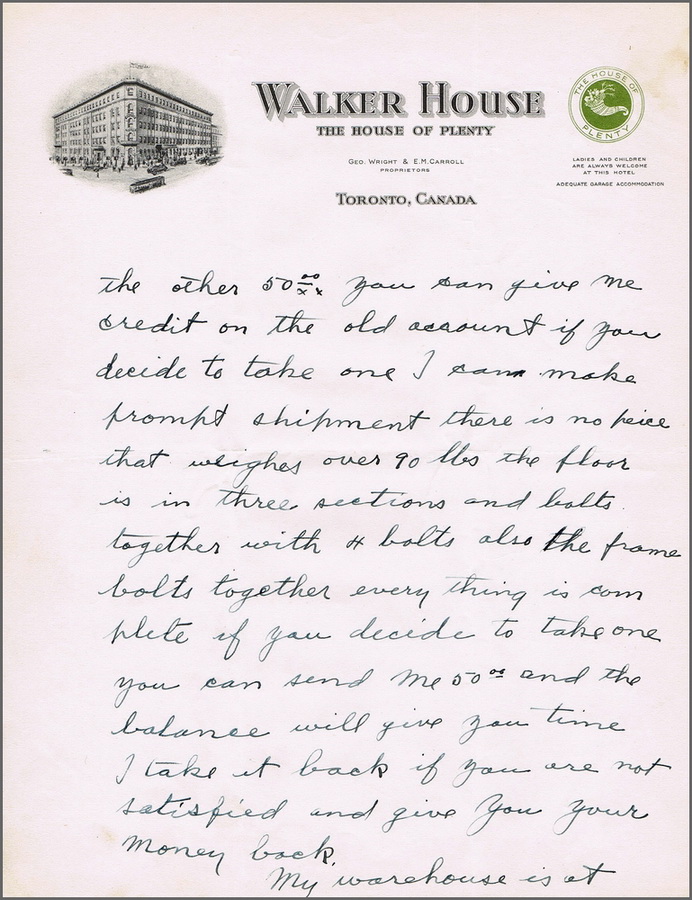 WALKER HOUSE
THE HOUSE OF PLENTY
GEO. WRIGHT & E.M. CARROLL
PROPRIETORS
TORONTO, CANADA
THE HOUSE OF PLENTY
LADIES AND CHILDREN
ARE ALWAYS WELCOME
AT THIS HOTEL
ADEQUATE GARAGE ACCOMMODATION
the other 50 00/xx you can give me
credit on the old account if you
decide to take one I can make
prompt shipment there is no peice
that weighes over 90 lbs the floor
is in three sections and bolts
together with 4 bolts also the frame
bolts together every thing is com
plete if you decide to take one
you can send me 50 00 and the
balance will give you time
I take it back if you are not
satisfied and give you your
money back.
My warehouse is at